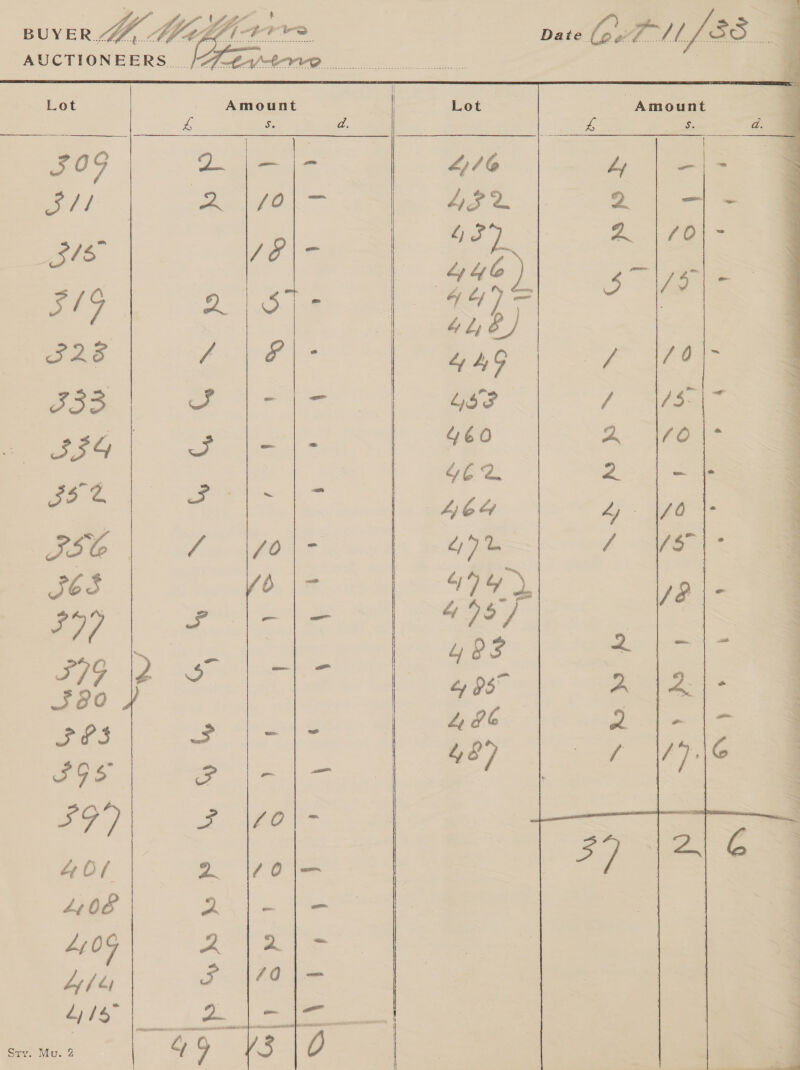 BUYER W. Williams Date Oct 11/33
AUCTIONEERS Stevens
Lot Amount Lot Amount
£ s. d. £ s. d.
309 2 - -
311 2 10 -
315 18 -
319 2 5 -
323 1 8 -
333 3 - -
334 3 - -
352 3 - -
356 1 10 -
363 10 -
377 3 - -
379 } 5 - -
380
383 3 - -
395 3 - -
397 3 10 -
401 2 10 -
408 2 - -
409 2 2 -
414 3 10 -
415 2 - -
49 13 0
416 4 - -
432 2 - -
437 2 10 -
446 )
447 = 5 15 -
448 )
449 1 10 -
453 1 15 -
460 2 10 -
462 2 - -
464 4 10 -
472 1 15 -
474 )
475 ) 18 -
483 2 - -
485 2 2 -
486 2 - -
487 1 17 6
37 2 6
Stv. Mu. 2